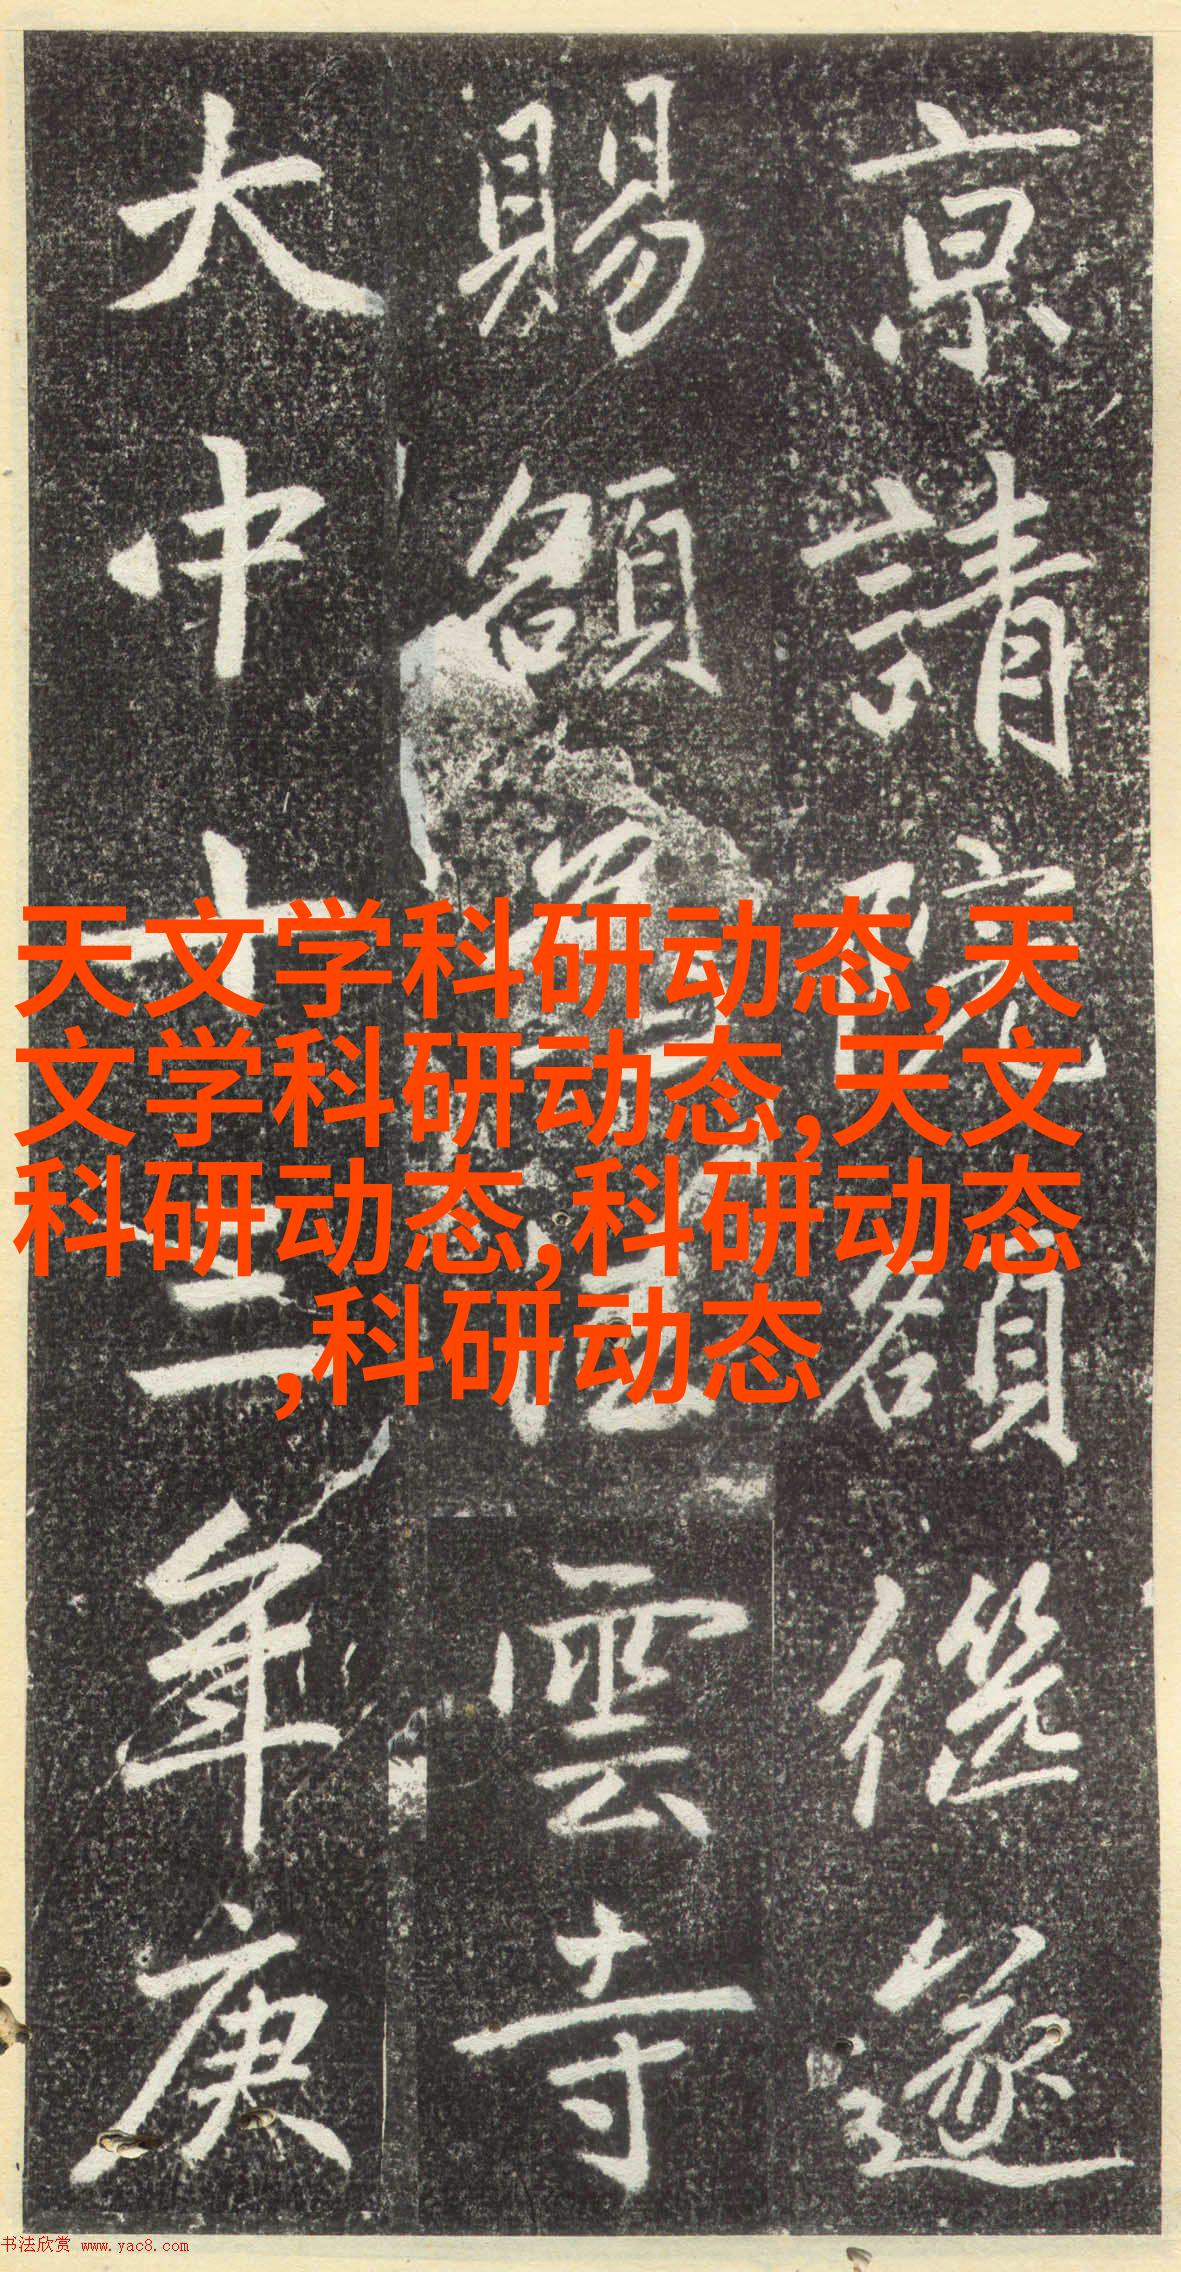 京請院額继遂
賜額雲寺
大中十三年庚
天文学科研动态,天
文学科研动态,天文
科研动态,科研动态
,科研动态
书法欣赏 www.yac8.com